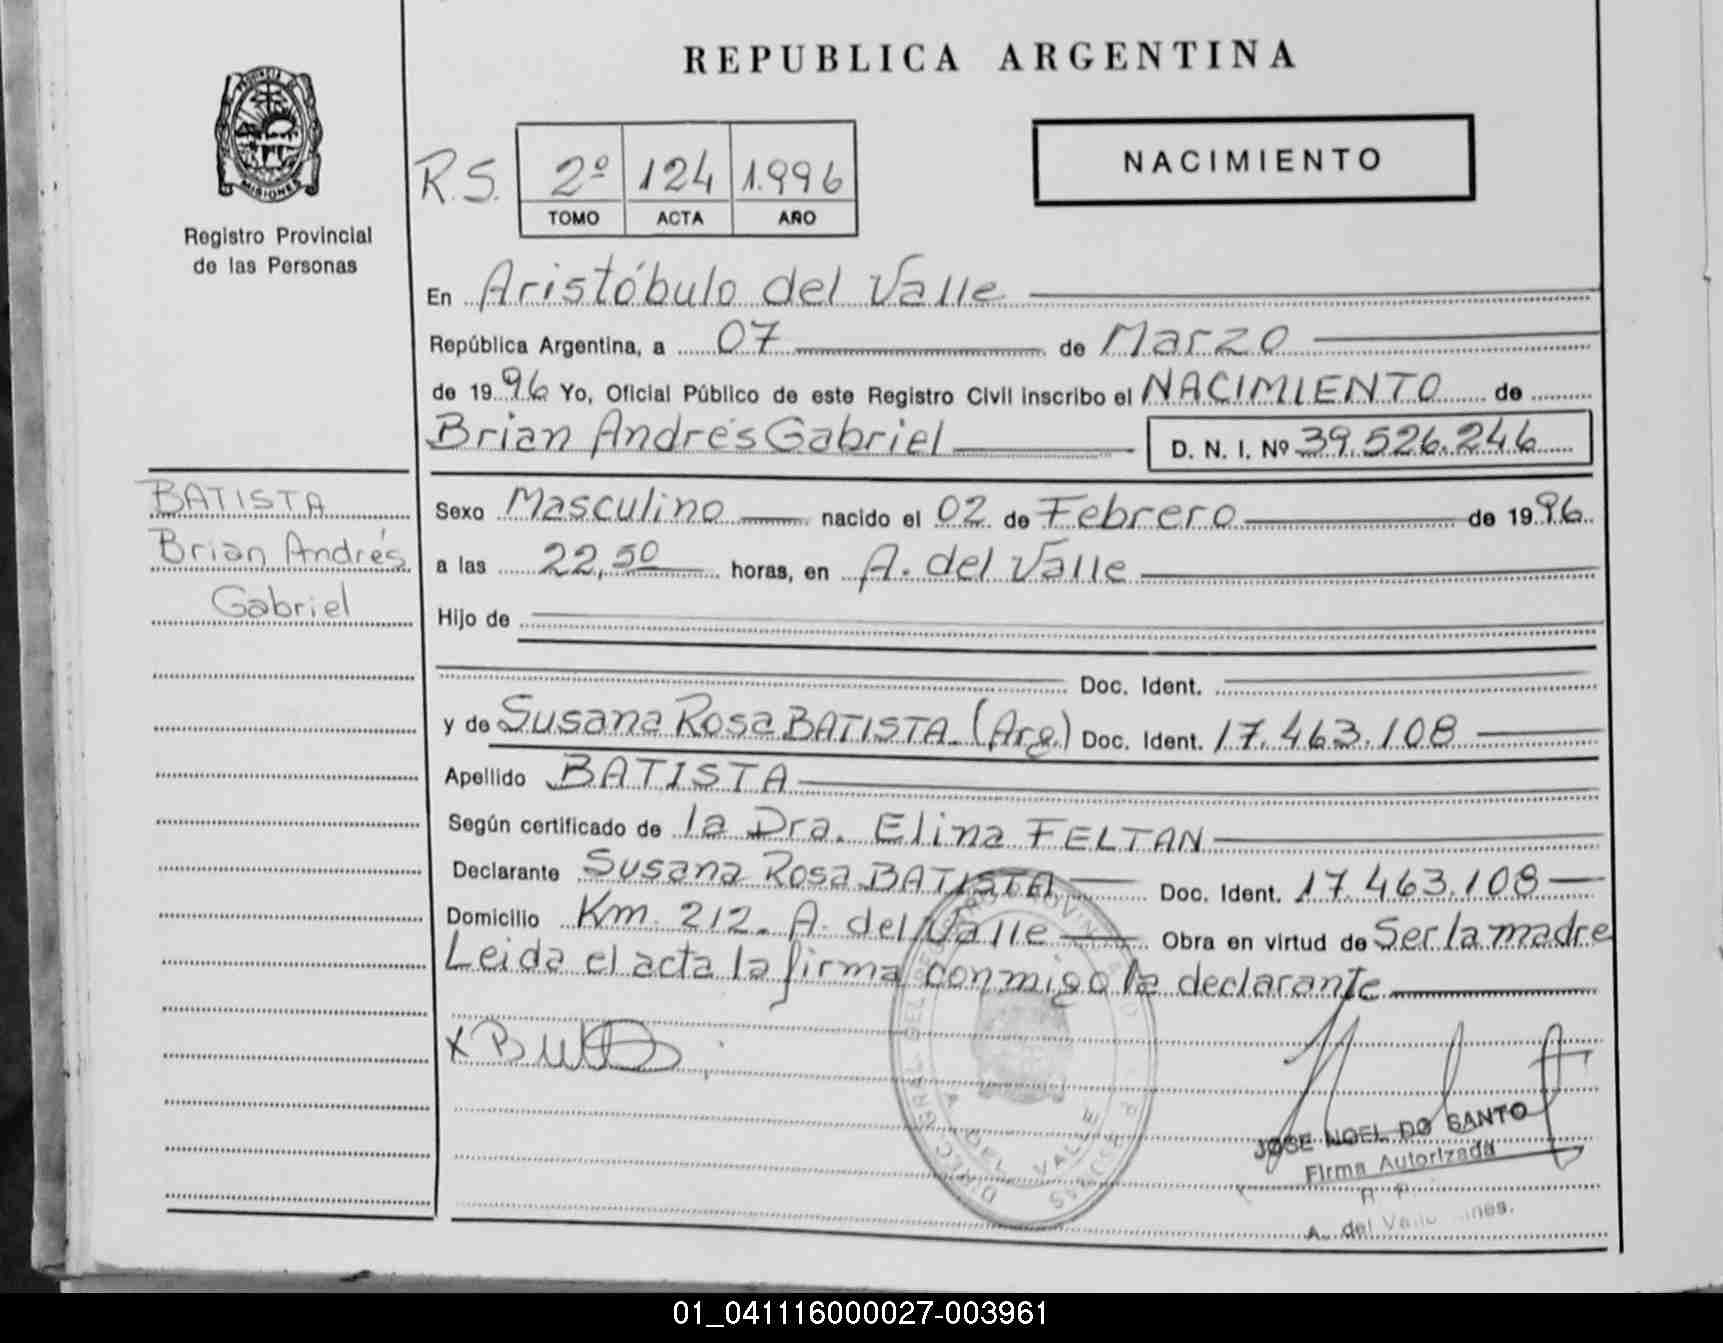 REPUBLICA ARGENTINA
PROVINCIA
MISIONES
Registro Provincial
de las Personas
R.S.
2º 124 1.996
TOMO ACTA AÑO
NACIMIENTO
En Aristóbulo del Valle
República Argentina, a 07 de Marzo
de 1996 Yo, Oficial Público de este Registro Civil inscribo el NACIMIENTO de
Brian Andrés Gabriel D. N. I. Nº 39.526.246
BATISTA
Brian Andrés
Gabriel
Sexo Masculino nacido el 02 de Febrero de 1996
a las 22,50 horas, en A. del Valle
Hijo de
Doc. Ident.
y de Susana Rosa BATISTA (Arg.) Doc. Ident. 17.463.108
Apellido BATISTA
Según certificado de la Dra. Elina FELTAN
Declarante Susana Rosa BATISTA Doc. Ident. 17.463.108
Domicilio Km. 212. A. del Valle Obra en virtud de Ser la madre
Leida el acta la firma conmigo la declarante
JOSE NOEL DO SANTO
Firma Autorizada
A. del Valle
01_041116000027-003961